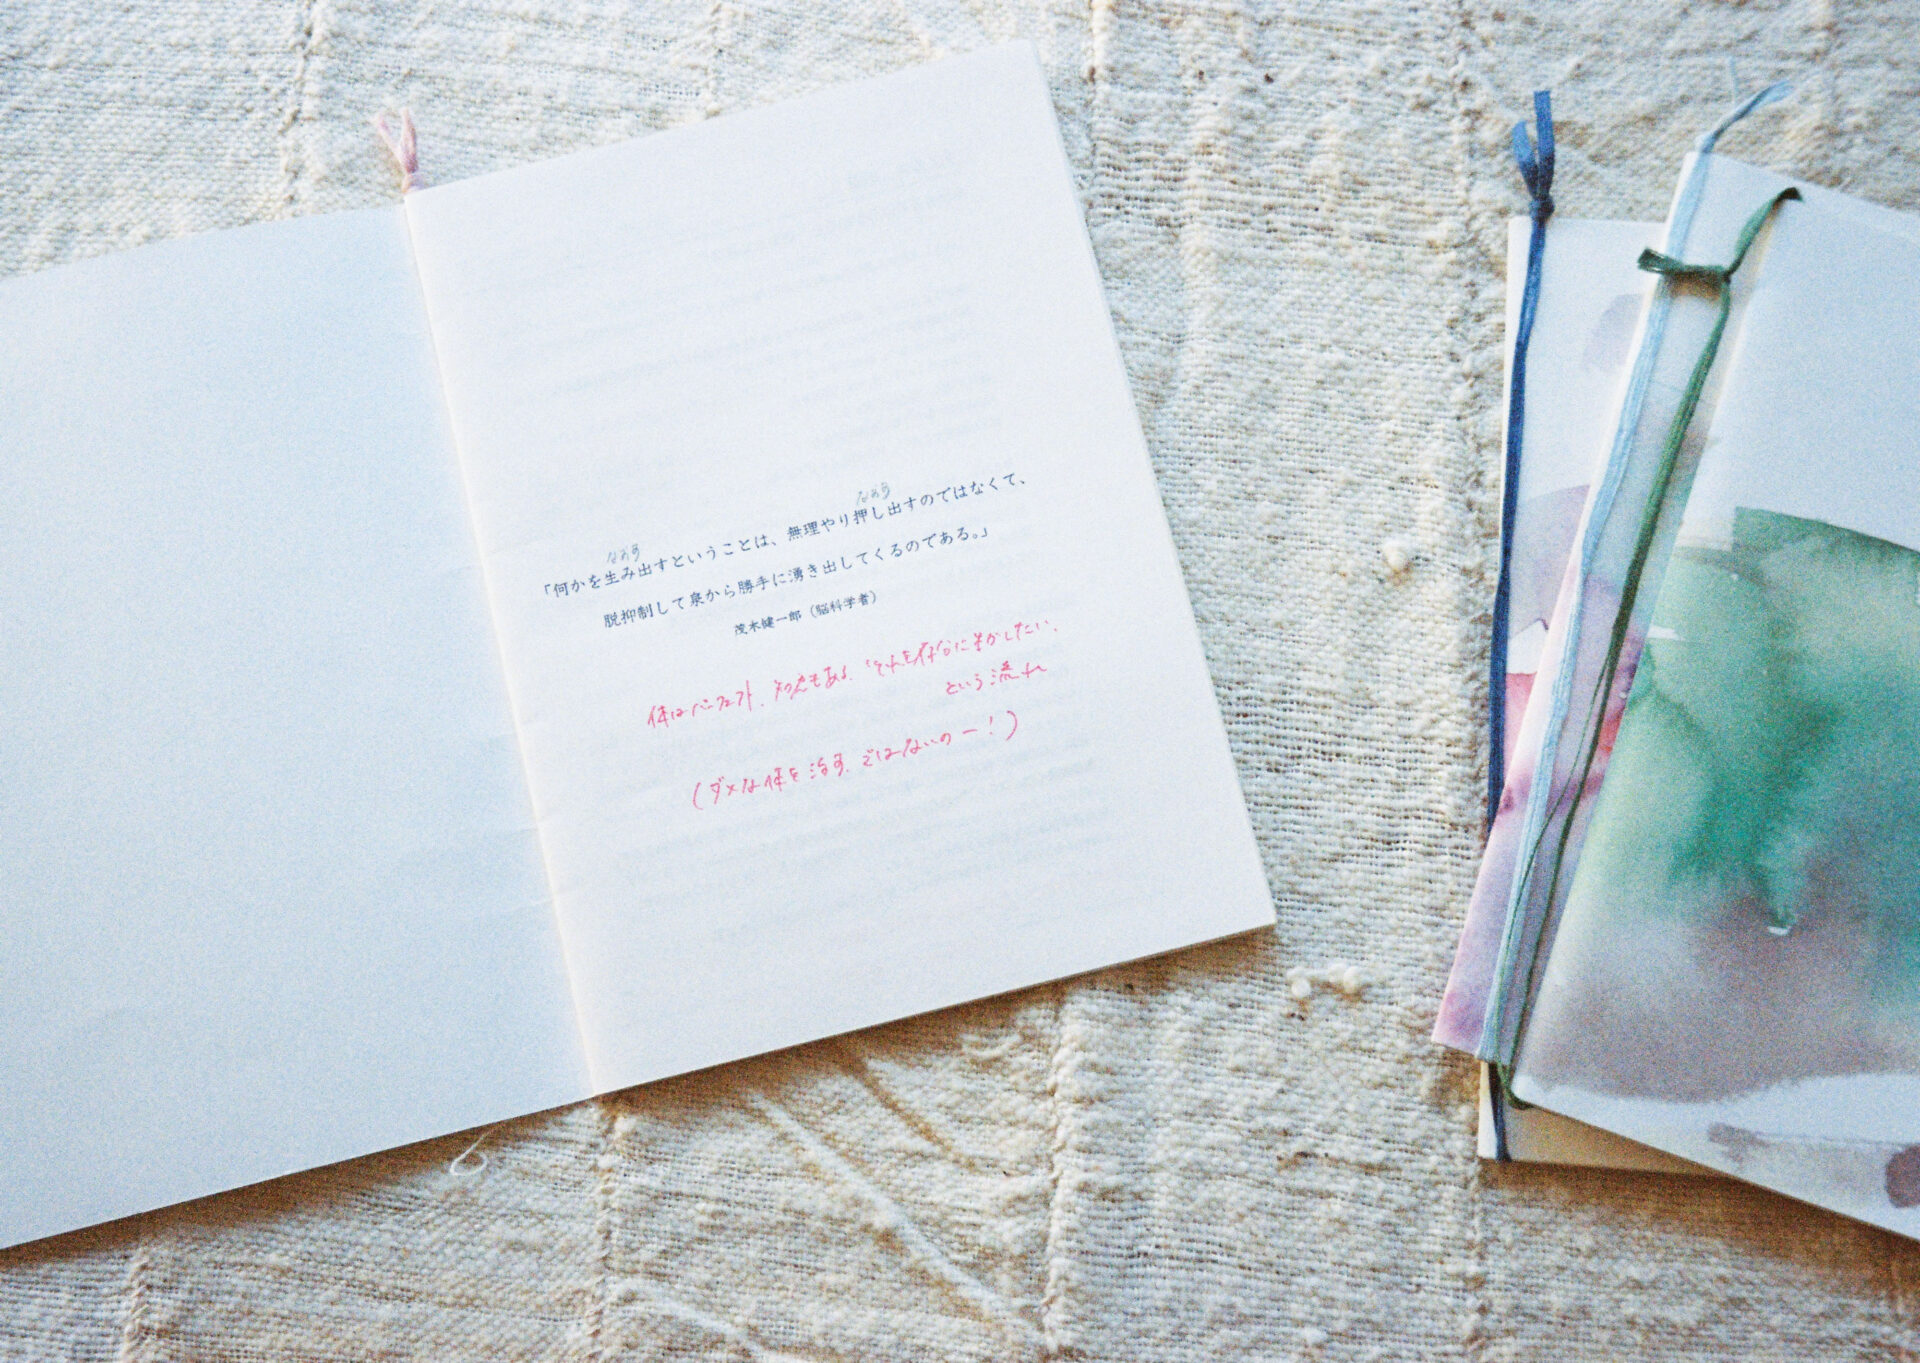 なおす
「何かを生み出すということは、無理やり押し出すのではなくて、
なおす
脱抑制して泉から勝手に湧き出してくるのである。」
茂木健一郎（脳科学者）
体はパーフェクト、知恵もある、それを存分に生かしたい、
という流れ
（ダメな体を治す、ではないのー！）